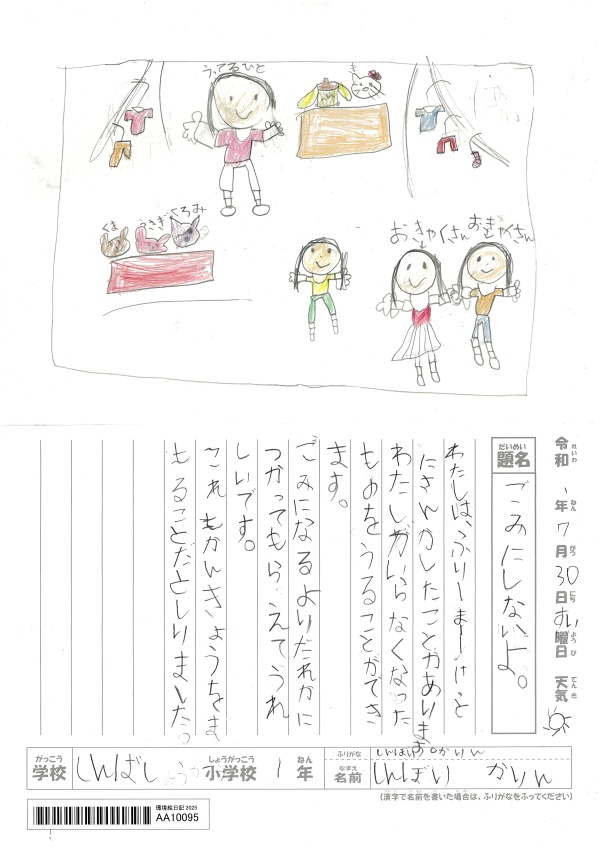 うってるひと
き
くま
うさぎ
くろみ
おきゃくさん
おきゃくさん
令和 1年 7月 30日 すい曜日 天気
れいわ ねん がつ にち ようび てんき
だいめい
題名
ごみにしないよ。
わたしは、ふりーまーけっと
にさんかしたことがあります。
わたしがいらなくなった
ものをうることができ
ます。
ごみになるよりだれかに
つかってもらえてうれ
しいです。
これもかんきょうをま
もることだとしりました。
がっこう
学校
しんばし
しょうがっこう
小学校
1
ねん
年
ふりがな
しんぼり かりん
なまえ
名前
しんぼり かりん
(漢字で名前を書いた場合は、ふりがなをふってください)
環境絵日記 2025
AA10095